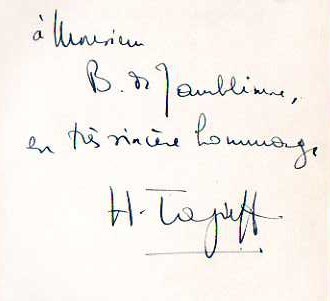 à Monsieur
B. de Jamblinne,
en très sincère hommage
H. Tazieff